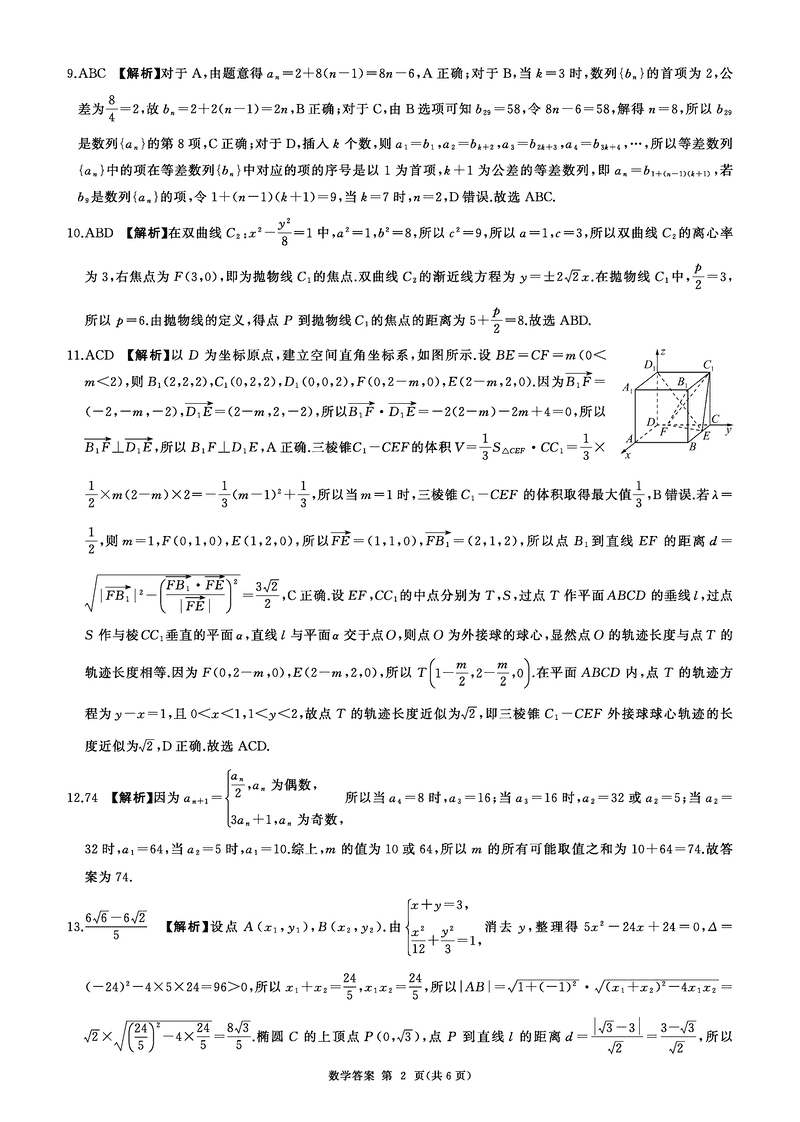 9.ABC 【解析】对于 A,由题意得 aₙ=2+8(n−1)=8n−6,A 正确;对于 B,当 k=3 时,数列{bₙ}的首项为 2,公
差为 8/4=2,故 bₙ=2+2(n−1)=2n,B 正确;对于 C,由 B 选项可知 b₂₉=58,令 8n−6=58,解得 n=8,所以 b₂₉
是数列{aₙ}的第 8 项,C 正确;对于 D,插入 k 个数,则 a₁=b₁,a₂=b_{k+2},a₃=b_{2k+3},a₄=b_{3k+4},⋯,所以等差数列
{aₙ}中的项在等差数列{bₙ}中对应的项的序号是以 1 为首项,k+1 为公差的等差数列,即 aₙ=b_{1+(n−1)(k+1)},若
b₉是数列{aₙ}的项,令 1+(n−1)(k+1)=9,当 k=7 时,n=2,D 错误.故选 ABC.
10.ABD 【解析】在双曲线 C₂:x²−y²/8=1 中,a²=1,b²=8,所以 c²=9,所以 a=1,c=3,所以双曲线 C₂的离心率
为 3,右焦点为 F(3,0),即为抛物线 C₁的焦点.双曲线 C₂的渐近线方程为 y=±2√2x.在抛物线 C₁中,p/2=3,
所以 p=6.由抛物线的定义,得点 P 到抛物线C₁的焦点的距离为 5+p/2=8.故选 ABD.
11.ACD 【解析】以 D 为坐标原点,建立空间直角坐标系,如图所示.设 BE=CF=m(0<
m<2),则 B₁(2,2,2),C₁(0,2,2),D₁(0,0,2),F(0,2−m,0),E(2−m,2,0).因为→B₁F=
(−2,−m,−2),→D₁E=(2−m,2,−2),所以→B₁F·→D₁E=−2(2−m)−2m+4=0,所以
→B₁F⊥→D₁E,所以 B₁F⊥D₁E,A 正确.三棱锥C₁−CEF的体积 V=1/3 S△CEF·CC₁=1/3×
1/2×m(2−m)×2=−1/3(m−1)²+1/3,所以当 m=1 时,三棱锥 C₁−CEF 的体积取得最大值1/3,B 错误.若 λ=
1/2,则 m=1,F(0,1,0),E(1,2,0),所以→FE=(1,1,0),→FB₁=(2,1,2),所以点 B₁到直线 EF 的距离 d=
√(|→FB₁|²−(→FB₁·→FE/|→FE|)²)=3√2/2,C 正确.设 EF,CC₁的中点分别为 T,S,过点 T 作平面ABCD 的垂线 l,过点
S 作与棱CC₁垂直的平面 α,直线 l 与平面α 交于点O,则点 O 为外接球的球心,显然点 O 的轨迹长度与点 T 的
轨迹长度相等.因为 F(0,2−m,0),E(2−m,2,0),所以 T(1−m/2,2−m/2,0).在平面 ABCD 内,点 T 的轨迹方
程为 y−x=1,且 0<x<1,1<y<2,故点 T 的轨迹长度近似为√2,即三棱锥 C₁−CEF 外接球球心轨迹的长
度近似为√2,D 正确.故选 ACD.
z
D₁
C₁
A₁
B₁
D
C
y
F
E
A
B
x
12.74 【解析】因为 aₙ₊₁={aₙ/2,aₙ 为偶数, 3aₙ+1,aₙ 为奇数, 所以当 a₄=8 时,a₃=16;当 a₃=16 时,a₂=32 或 a₂=5;当 a₂=
32 时,a₁=64,当 a₂=5 时,a₁=10.综上,m 的值为 10 或 64,所以 m 的所有可能取值之和为 10+64=74.故答
案为 74.
13.(6√6−6√2)/5 【解析】设点 A(x₁,y₁),B(x₂,y₂).由{x+y=3, x²/12+y²/3=1, 消去 y,整理得 5x²−24x+24=0,Δ=
(−24)²−4×5×24=96>0,所以 x₁+x₂=24/5,x₁x₂=24/5,所以|AB|=√(1+(−1)²)·√((x₁+x₂)²−4x₁x₂)=
√2×√((24/5)²−4×24/5)=8√3/5.椭圆 C 的上顶点 P(0,√3),点 P 到直线 l 的距离 d=|√3−3|/√2=(3−√3)/√2,所以
数学答案 第 2 页(共 6 页)